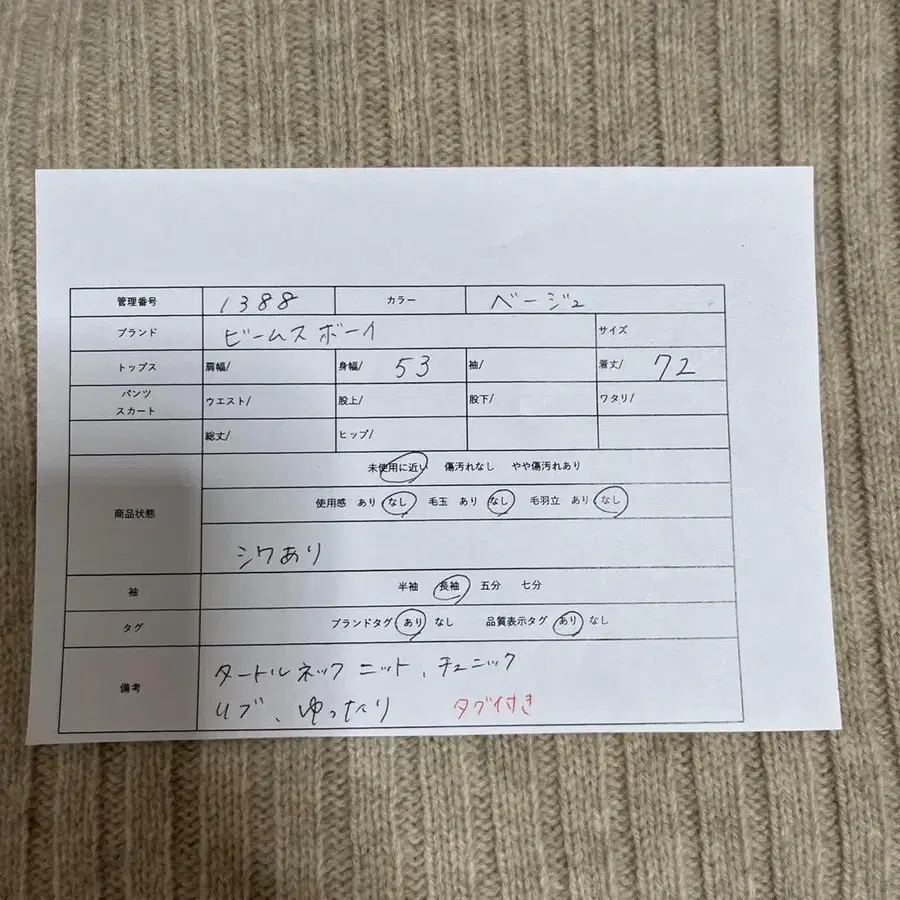 管理番号 1388 カラー ベージュ
ブランド ビームス ボーイ サイズ
トップス 肩幅/ 身幅/ 53 袖/ 着丈/ 72
パンツ
スカート ウエスト/ 股上/ 股下/ ワタリ/
総丈/ ヒップ/
未使用に近い 傷汚れなし やや傷汚れあり
商品状態 使用感 あり なし 毛玉 あり なし 毛羽立 あり なし
シワあり
袖 半袖 長袖 五分 七分
タグ ブランドタグ あり なし 品質表示タグ あり なし
備考 タートルネック ニット、チュニック
リブ、ゆったり タグ付き